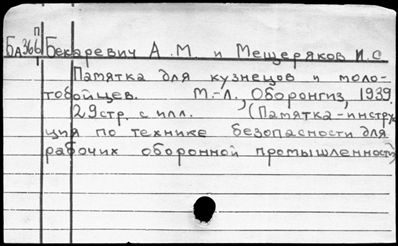 П
БА366 Бекаревич А.М. и Мещеряков И.С
Памятка для кузнецов и моло-
тобойцев. М.-Л., Оборонгиз, 1939.
29 стр. с илл. (Памятка-инстру
ция по технике безопасности для
рабочих оборонной промышленности)